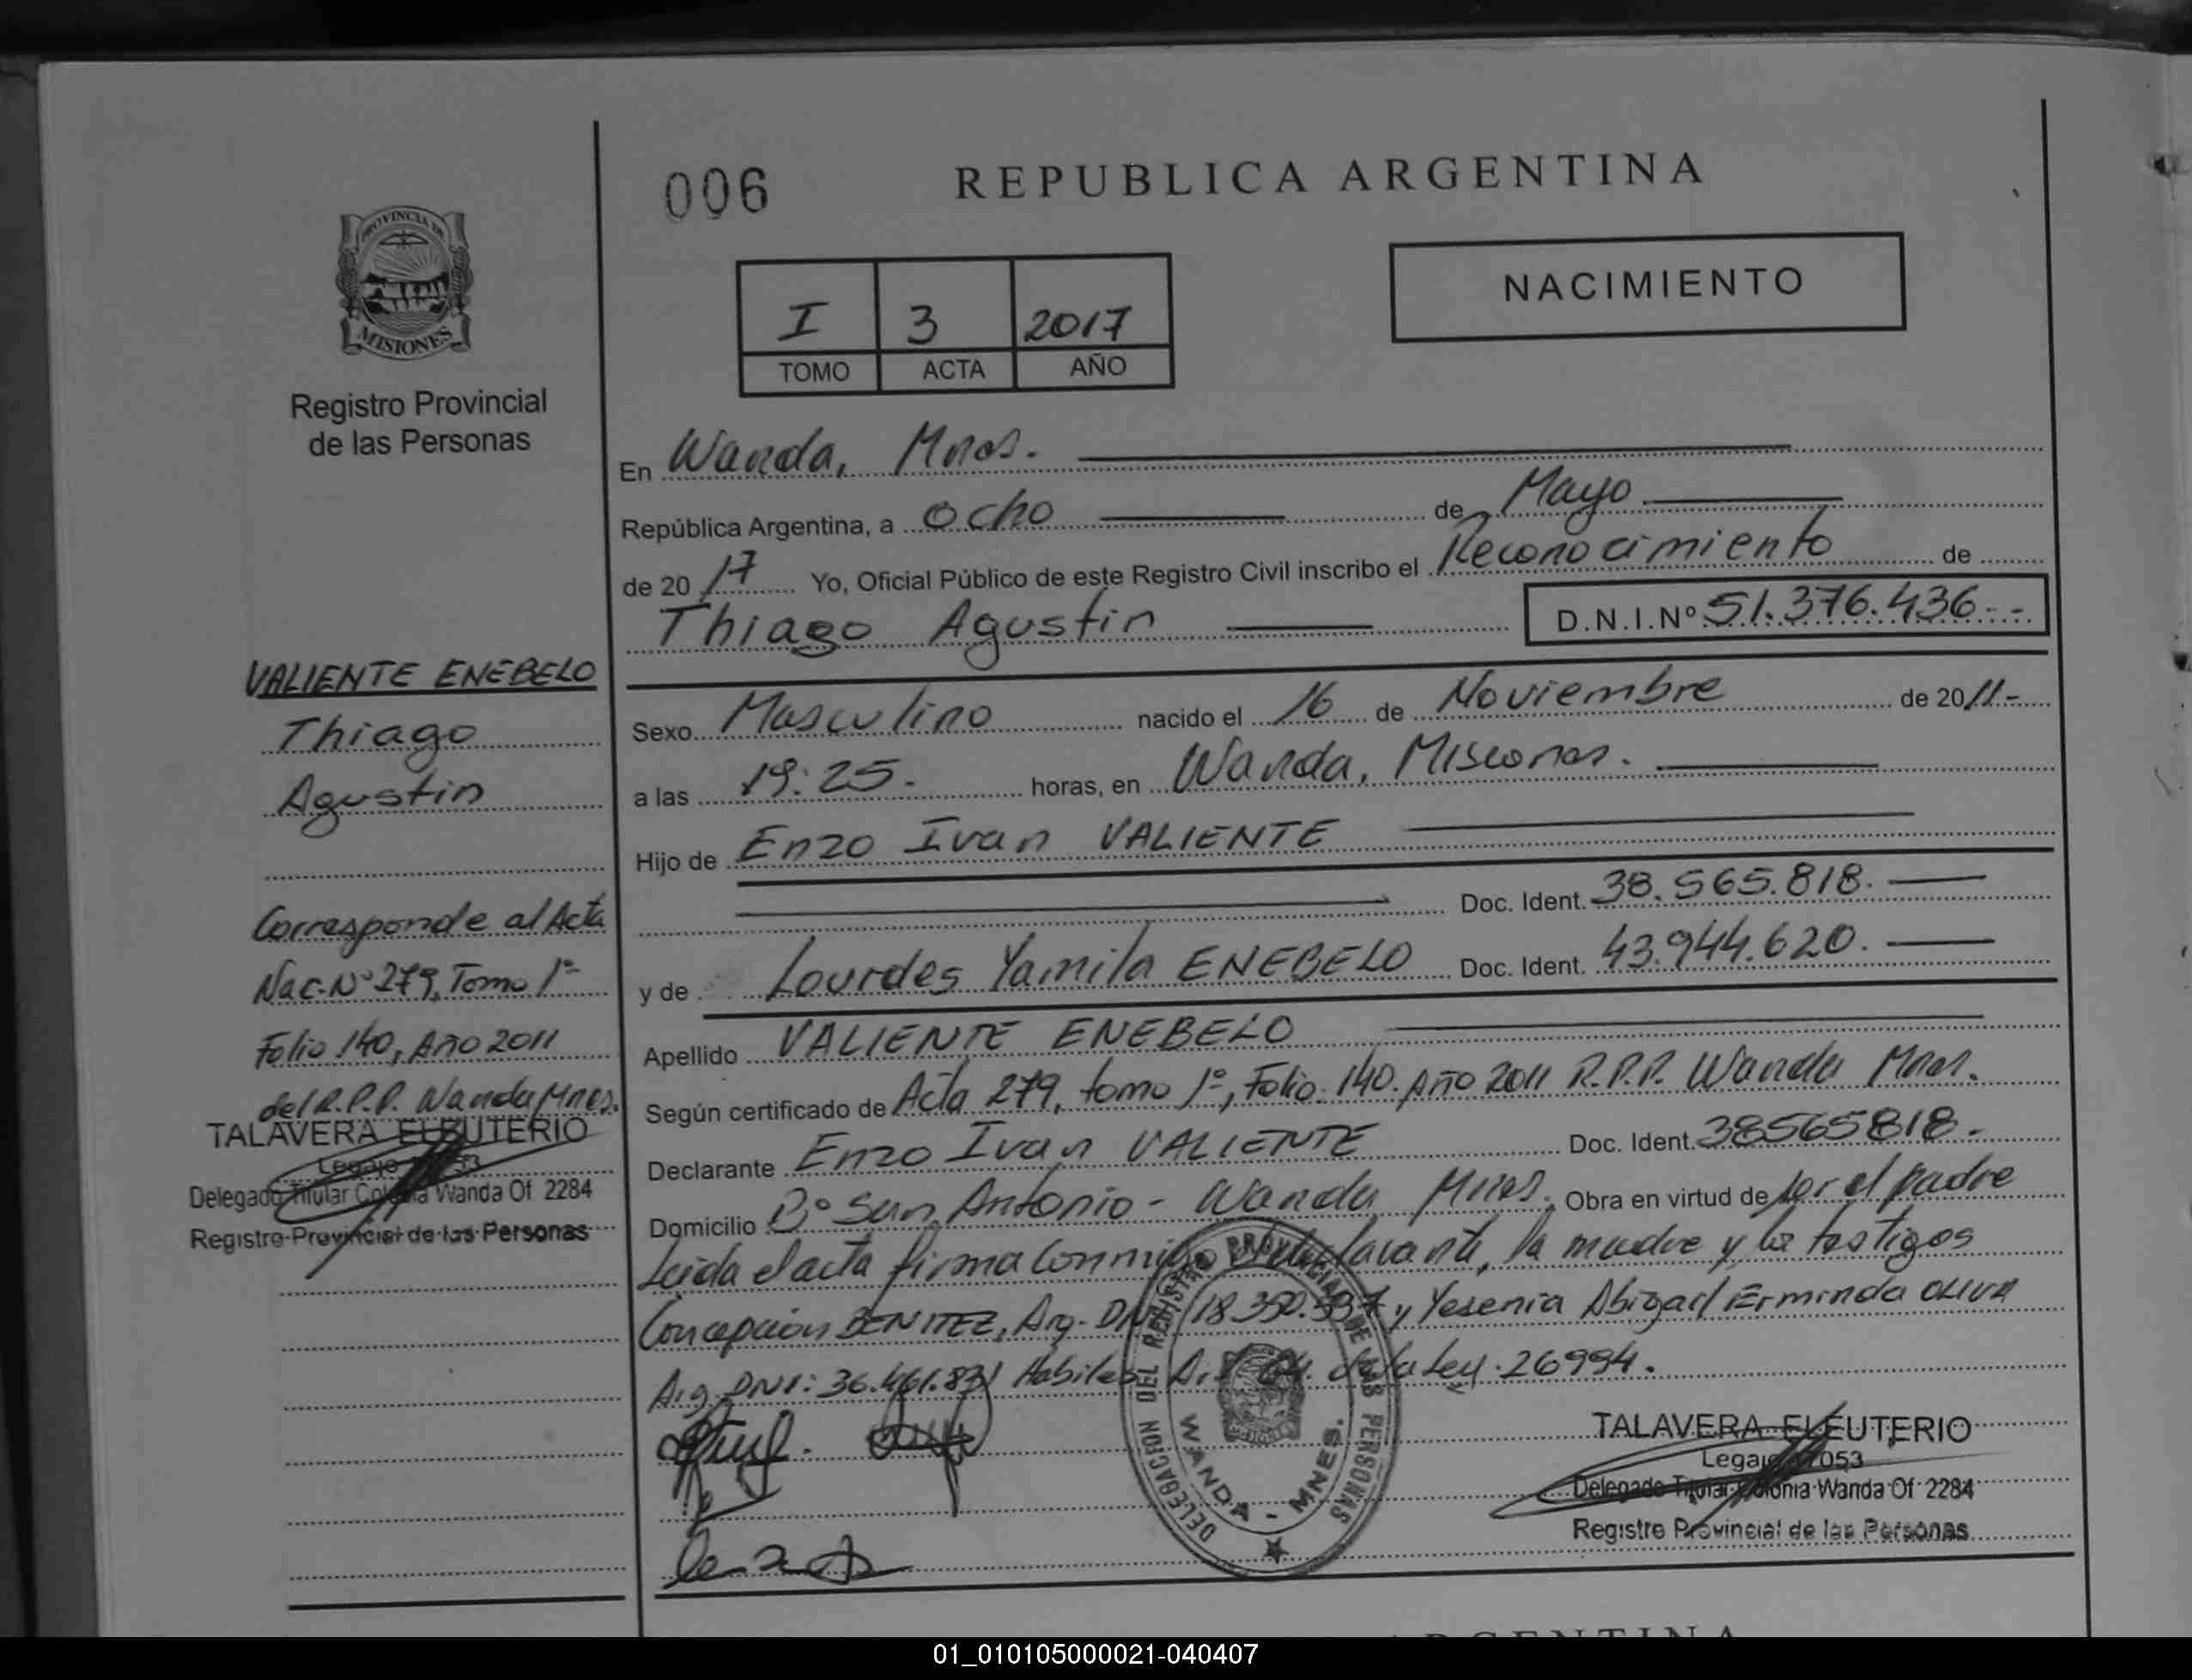 006
REPUBLICA ARGENTINA
PROVINCIA DE
MISIONES
Registro Provincial
de las Personas
I 3 2017
TOMO ACTA AÑO
NACIMIENTO
En Wanda, Mnes.
República Argentina, a ocho de Mayo
de 2017 Yo, Oficial Público de este Registro Civil inscribo el Reconocimiento de
Thiago Agustin D.N.I.Nº 51.376.436.--
Sexo Masculino nacido el 16 de Noviembre de 2011.-
a las 19:25.- horas, en Wanda, Misiones.
Hijo de Enzo Ivan VALIENTE
Doc. Ident. 38.565.818.
y de Lourdes Yamila ENEBELO Doc. Ident. 43.944.620.
Apellido VALIENTE ENEBELO
Según certificado de Acta 279, tomo 1º, Folio 140. Año 2011 R.P.P. Wanda Mnes.
Declarante Enzo Ivan VALIENTE Doc. Ident. 38565818.-
Domicilio Bº San Antonio - Wanda Mnes. Obra en virtud de ser el padre
Leida el acta firma conmigo la madre y los testigos
Concepción BENITEZ, Arg. DNI 18.350. y Yesenia Abigail Erminda OLIVA
Arg. DNI: 36.461.831 Habiles de la Ley 26994.
VALIENTE ENEBELO
Thiago
Agustin
Corresponde al Acta
Nac. Nº 279, Tomo 1º
Folio 140, Año 2011
del R.P.P. Wanda Mnes.
TALAVERA ELEUTERIO
Delegado Titular Colonia Wanda Of 2284
Registro Provincial de las Personas
DELEGACION DEL REGISTRO PROVINCIAL DE LAS PERSONAS
WANDA - MNES.
TALAVERA ELEUTERIO
Delegado Titular Colonia Wanda Of 2284
Registro Provincial de las Personas
01_010105000021-040407